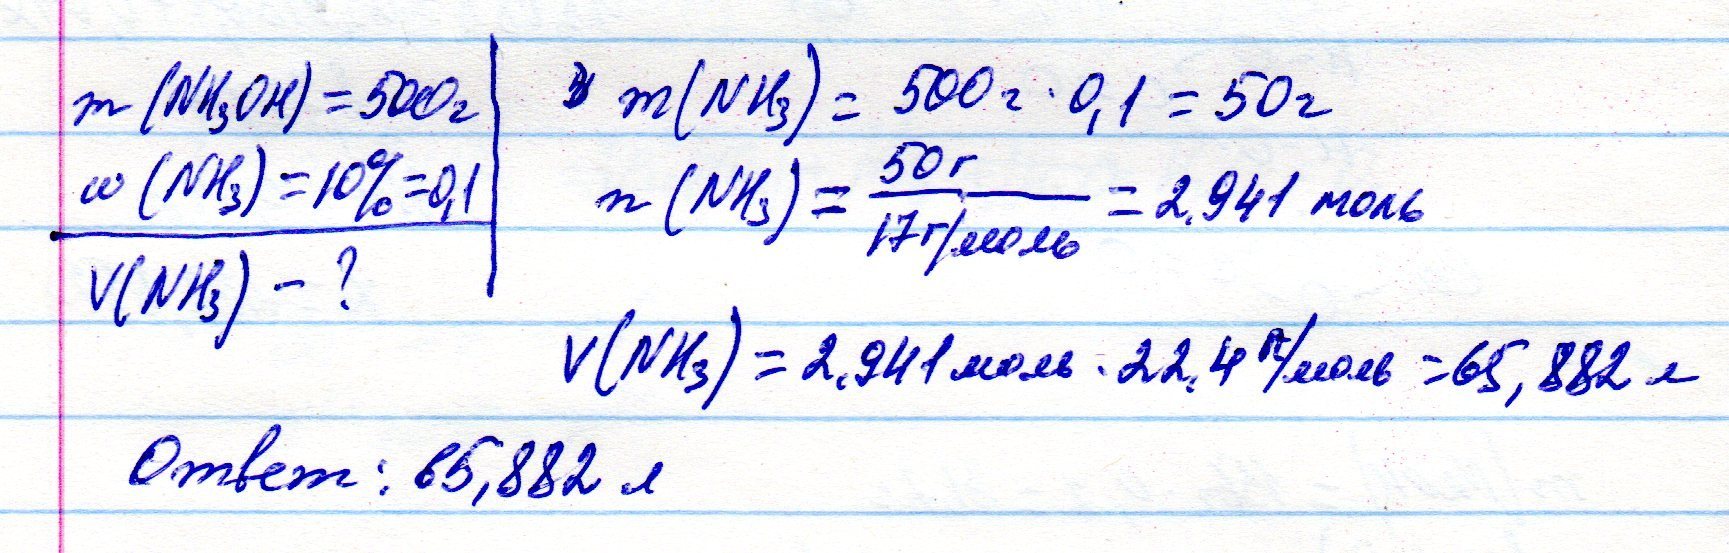 m (NH₃OH) = 500г
w (NH₃) = 10% = 0,1
V(NH₃) – ?
m(NH₃) = 500г · 0,1 = 50г
n (NH₃) = 50г / 17г/моль = 2.941 моль
V(NH₃) = 2.941 моль · 22.4 л/моль = 65,882 л
Ответ: 65,882 л